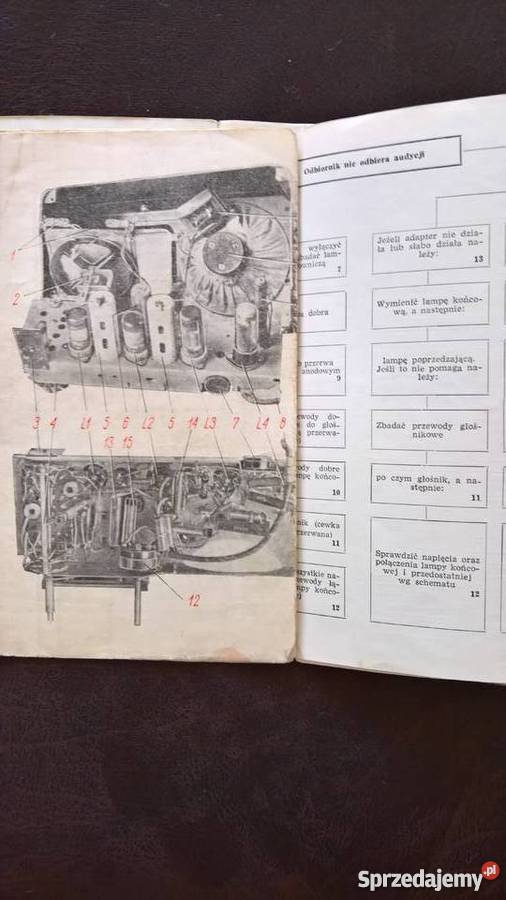 1
2
3 4 L1 5 6 L2 5 14 L3 7 L4 8
13 15
12
Odbiornik nie odbiera audycji
wyłączyć
7
dobra
przerwa
anodowym
9
do-
przerwa-
dobre
końco-
10
(cewka
11
na-
końco-
12
Jeżeli adapter nie dzia-
ła lub słabo działa na-
leży:
13
Wymienić lampę końco-
wą, a następnie:
lampę poprzedzającą.
Jeśli to nie pomaga na-
leży:
Zbadać przewody głoś-
nikowe
po czym głośnik, a na-
stępnie:
11
Sprawdzić napięcia oraz
połączenia lampy końco-
wej i przedostatniej
wg schematu
12
Sprzedajemy.pl